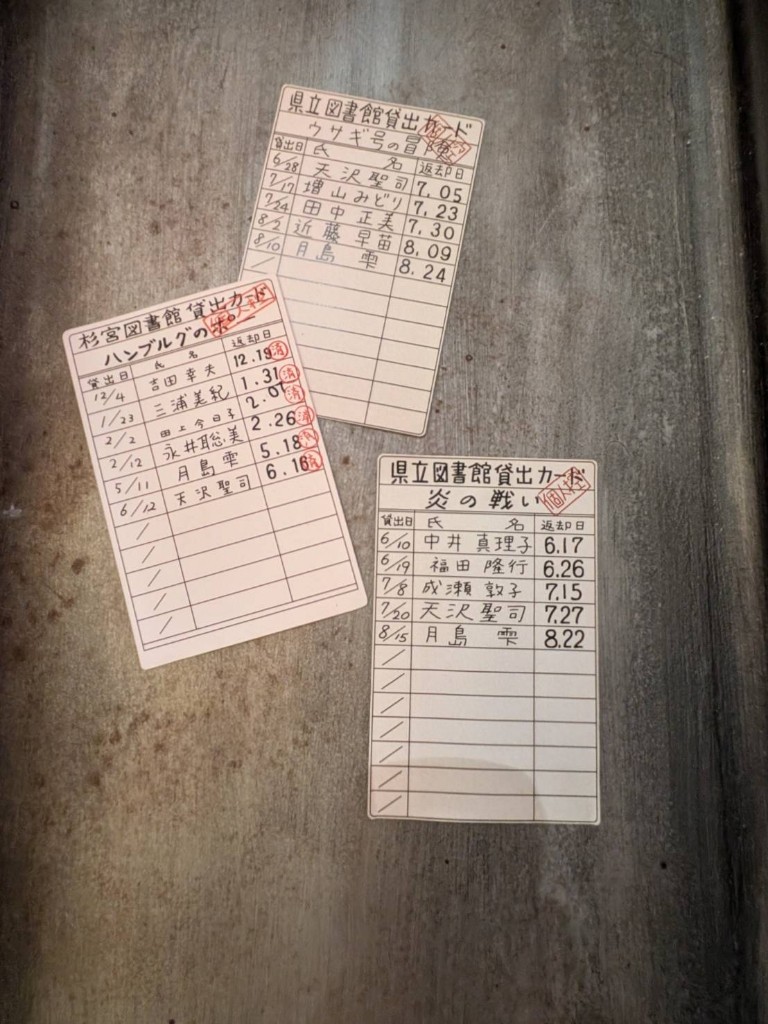 県立図書館貸出カード
ウサギ号の冒険
貸出日 氏 名 返却日
6/28 天沢聖司 7.05
7/17 増山みどり 7.23
7/24 田中正美 7.30
8/2 近藤早苗 8.09
8/10 月島 雫 8.24
/
杉宮図書館貸出カード
ハンブルグのポー
貸出日 氏 名 返却日
12/4 吉田幸夫 12.19 済
1/23 三浦美紀 1.31 済
2/2 田上今日子 2.07 済
2/12 永井聡美 2.26 済
5/11 月島 雫 5.18
6/12 天沢聖司 6.16 済
/
/
/
/
/
県立図書館貸出カード
炎の戦い
貸出日 氏 名 返却日
6/10 中井 真理子 6.17
6/19 福田 隆行 6.26
7/8 成瀬 敦子 7.15
7/20 天沢聖司 7.27
8/15 月島 雫 8.22
/
/
/
/
/
/
/